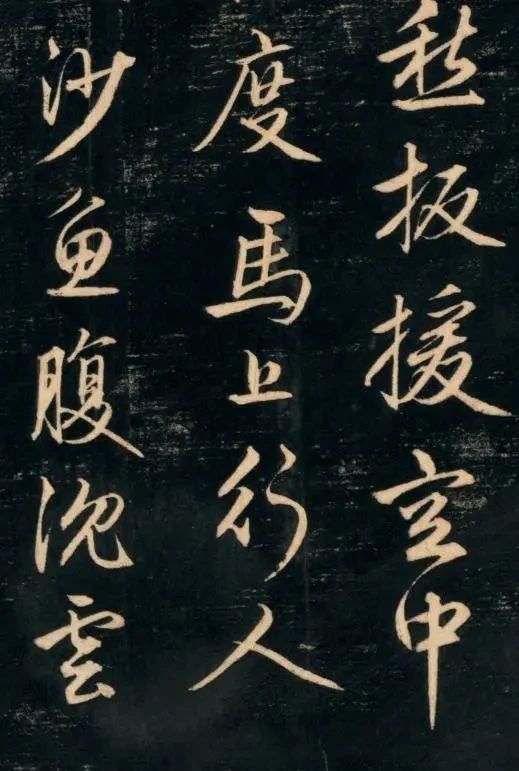 愁扳援空中
度馬上行人
沙魚腹沉雲